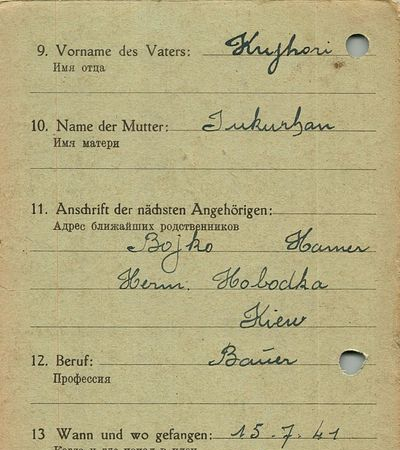 9. Vorname des Vaters: Kuzhori
Имя отца
10. Name der Mutter: Jukurhan
Имя матери
11. Anschrift der nächsten Angehörigen:
Адрес ближайших родственников
Bojko Hamer
Herm. Hobodka
Kiew
12. Beruf: Bauer
Профессия
13 Wann und wo gefangen: 15.7.41